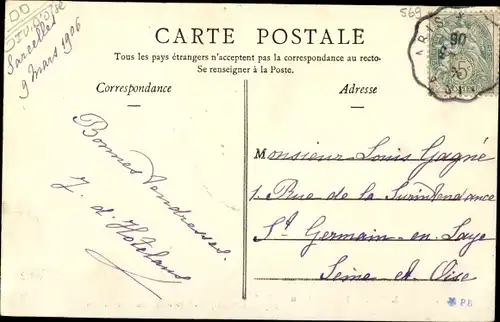 569
Sarcelles
9 mars 1906
CARTE POSTALE
Tous les pays étrangers n'acceptent pas la correspondance au recto.
Se renseigner à la Poste.
Correspondance
Adresse
Bonnes tendresses.
J. d'
Monsieur Louis Gagné
1, Rue de la Surintendance
St Germain-en-Laye
Seine et Oise
PB